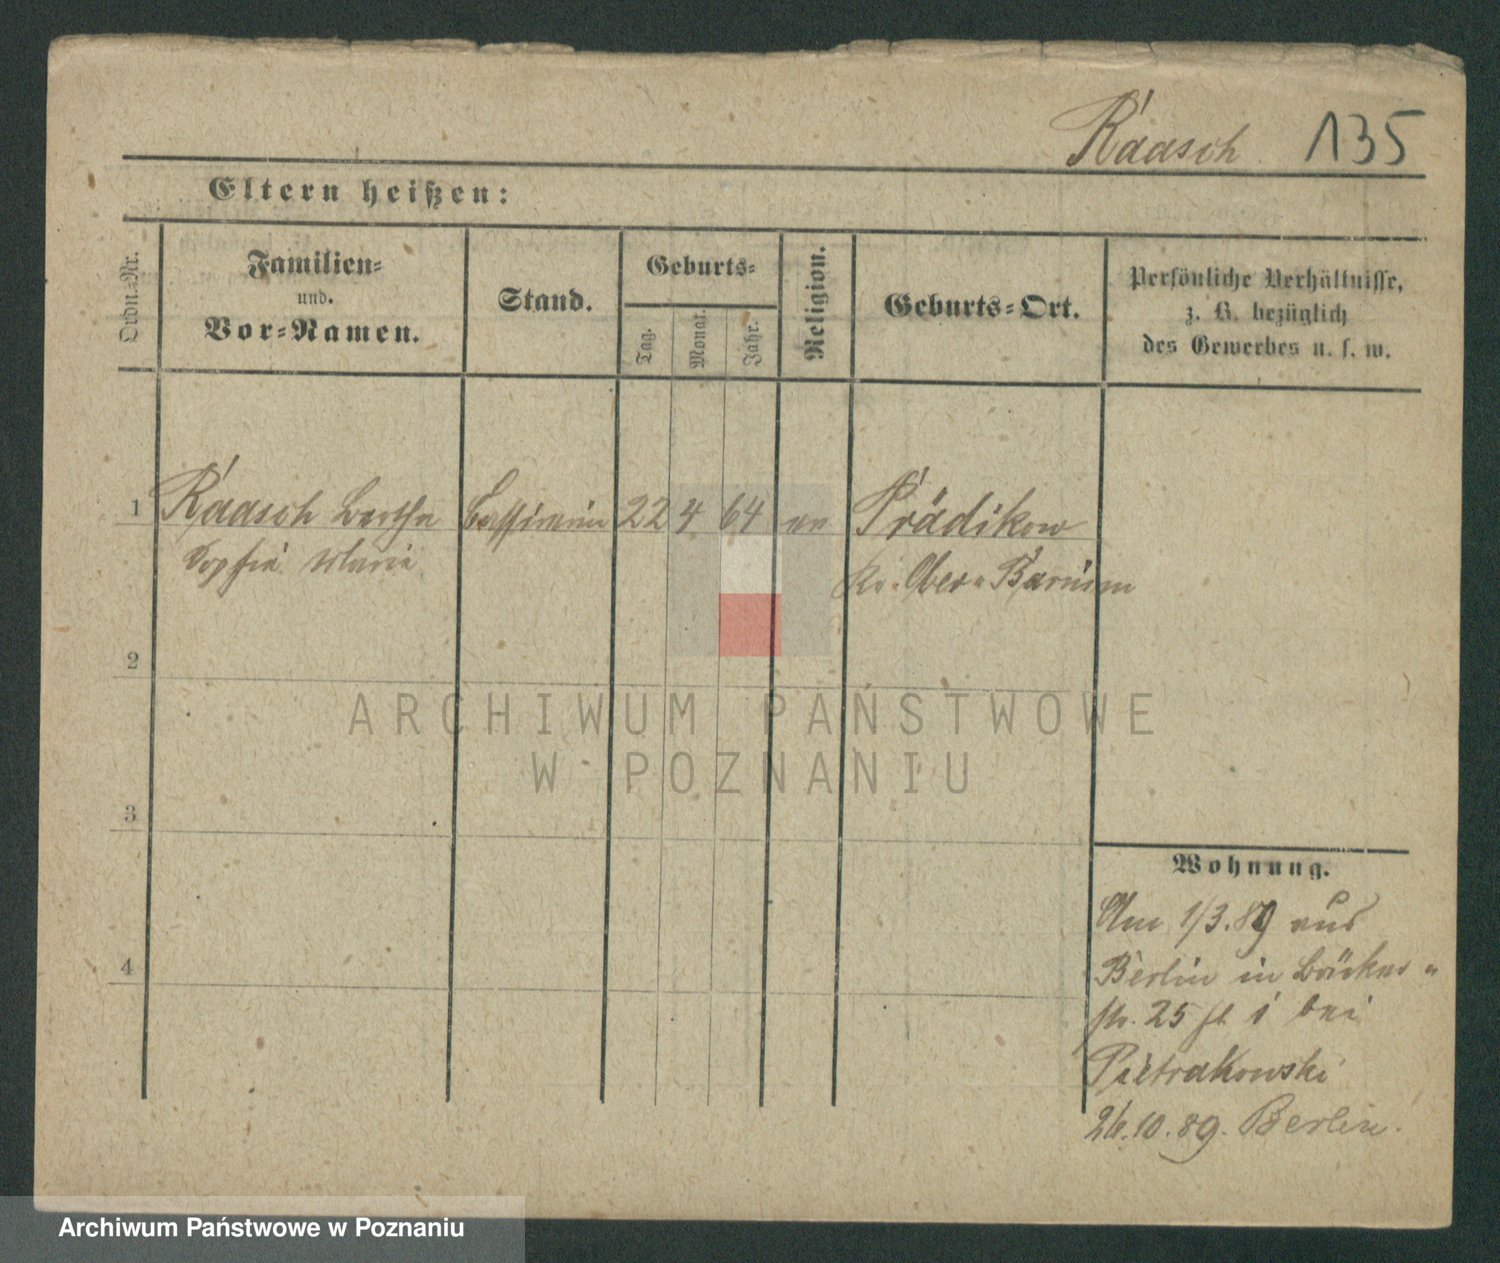 Raasch 135
Eltern heißen:
Ordn.-Nr.
Familien-
und
Vor-Namen.
Stand.
Geburts-
Tag.
Monat.
Jahr.
Religion.
Geburts-Ort.
Persönliche Verhältnisse,
z. B. bezüglich
des Gewerbes u. s. w.
1 Raasch Bertha Cassirerin 22 4 64 ev Prädikow
Sophie Marie
Kr. Ober-Barnim
2
3
4
Wohnung.
Am 1/3.89 aus
Berlin in Bäcker-
str. 25 bei
Pietrakowski
26.10.89. Berlin.
ARCHIWUM PAŃSTWOWE
W POZNANIU
Archiwum Państwowe w Poznaniu